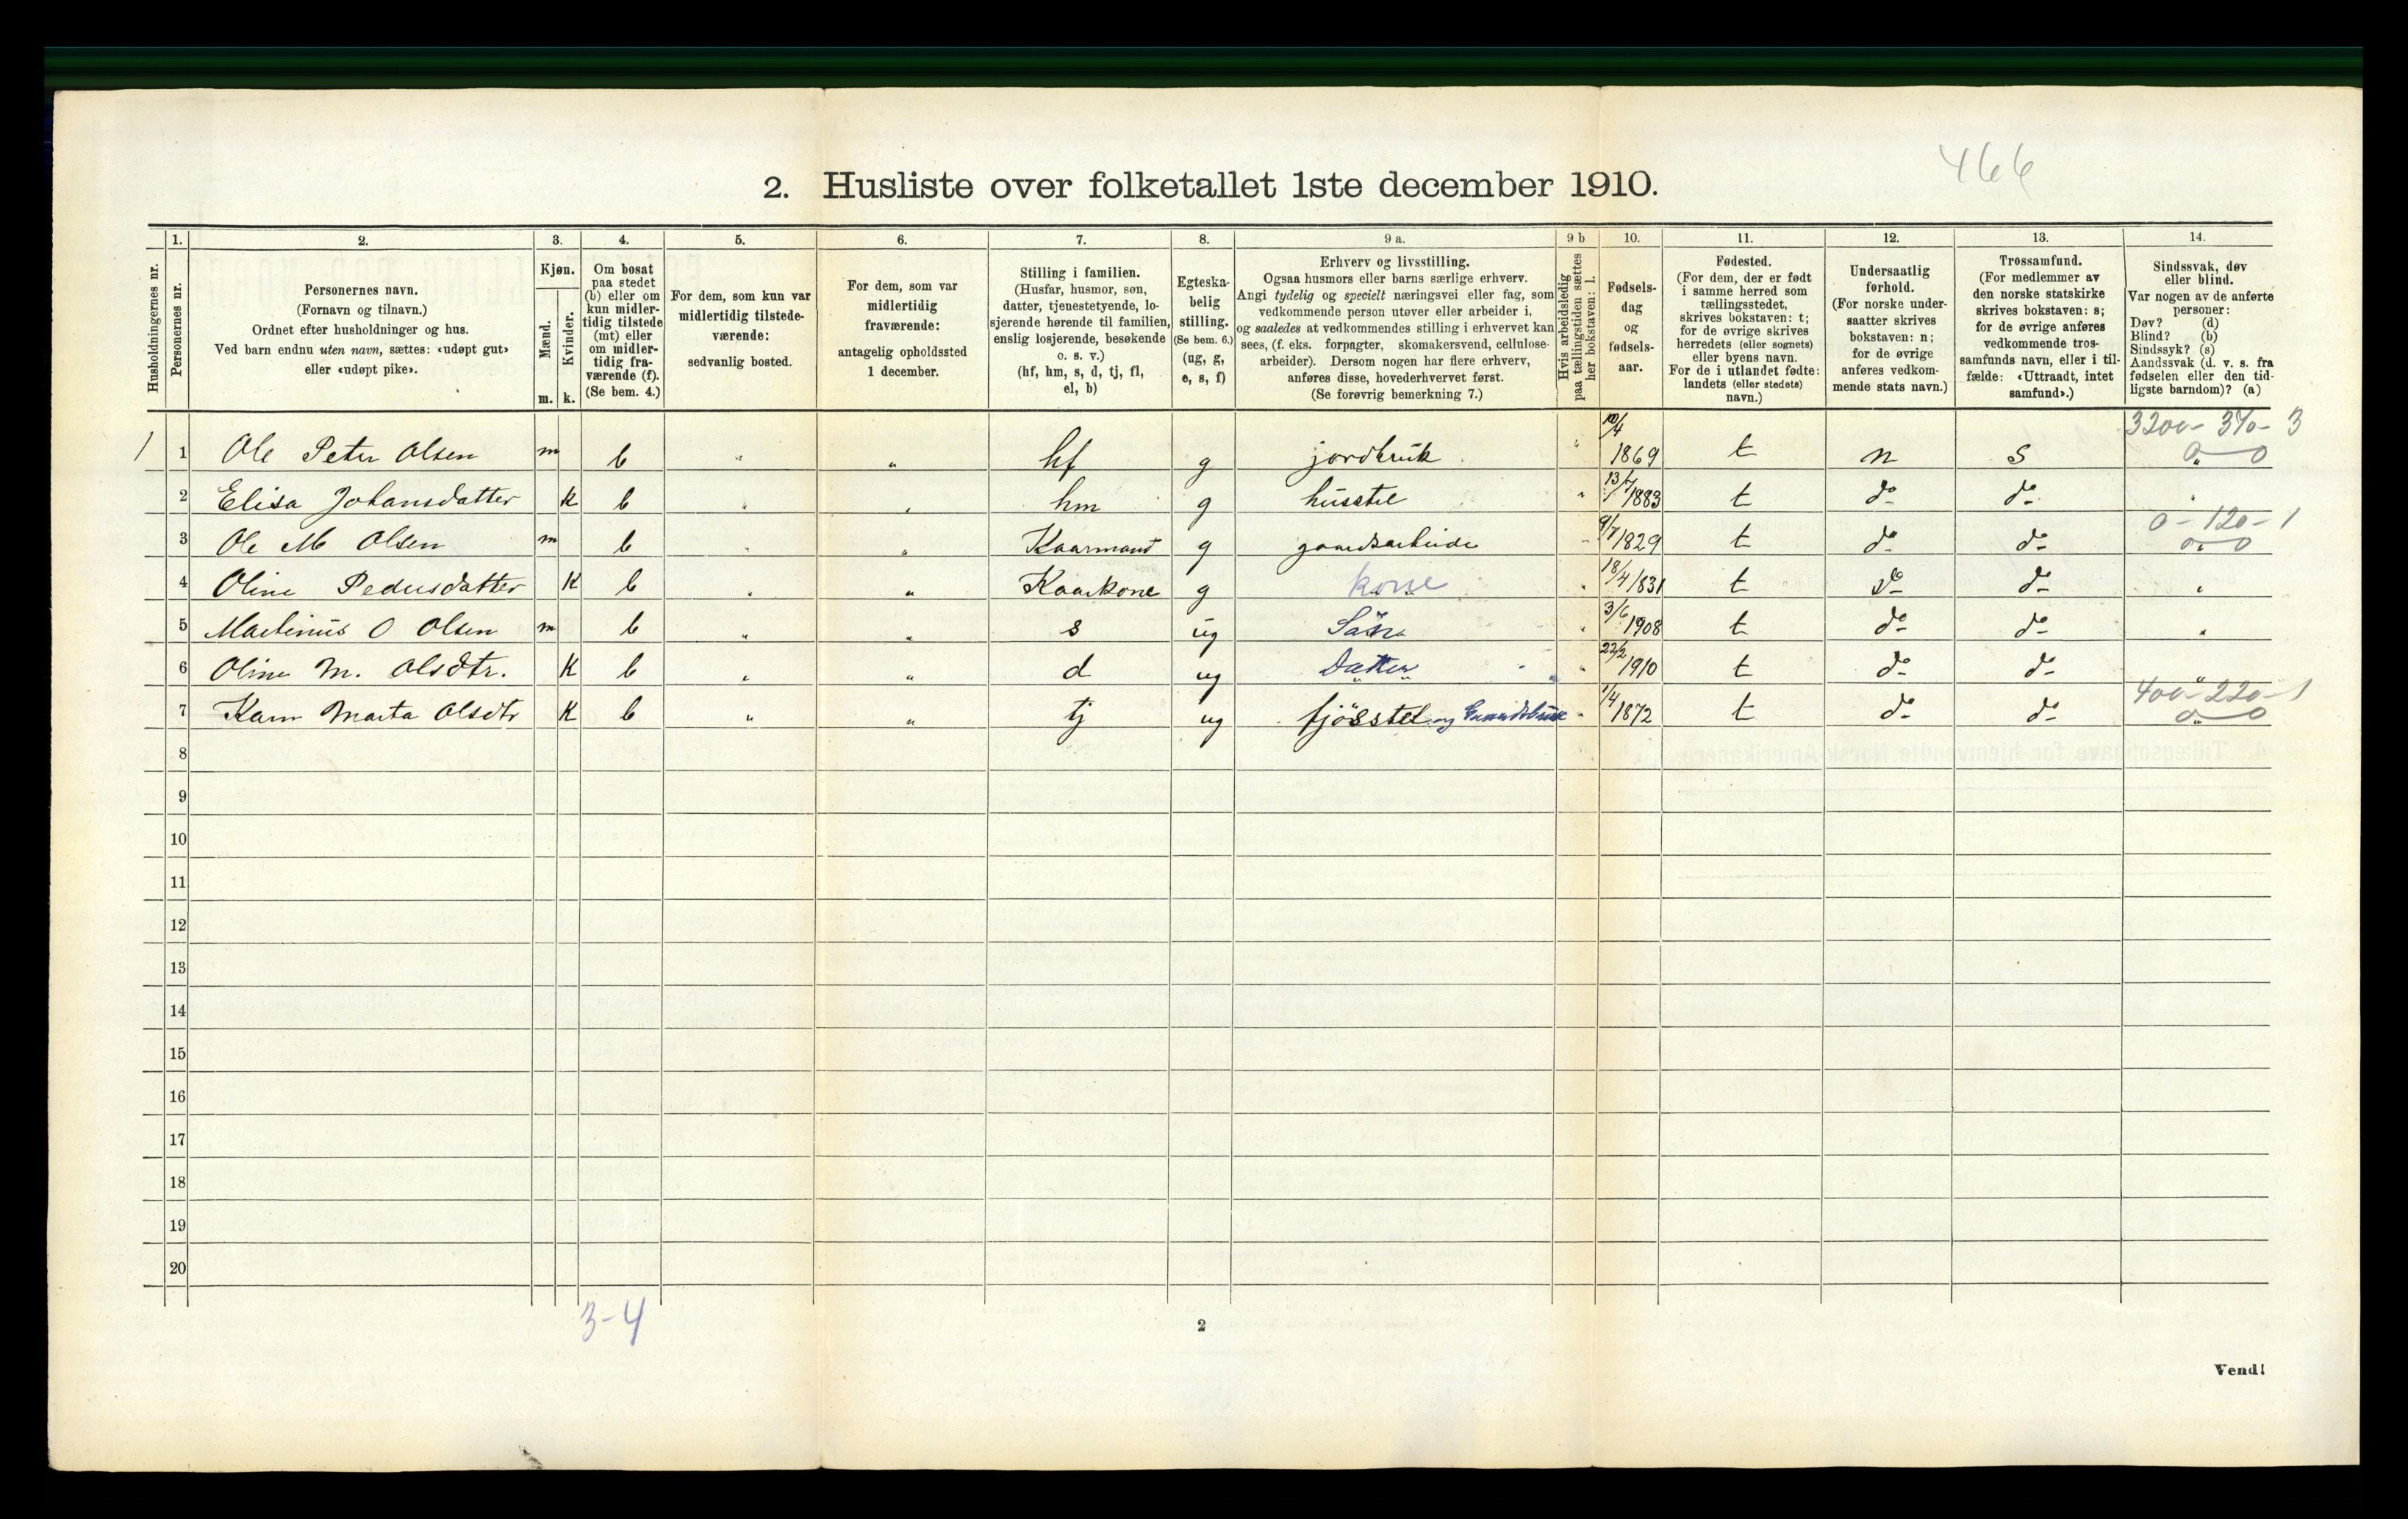 466
2. Husliste over folketallet 1ste december 1910.
Husholdningernes nr.
1.
Personernes nr.
2.
Personernes navn.
(Fornavn og tilnavn.)
Ordnet efter husholdninger og hus.
Ved barn endnu uten navn, sættes: «udøpt gut»
eller «udøpt pike».
3.
Kjøn.
Mænd.
Kvinder.
m. k.
4.
Om bosat
paa stedet
(b) eller om
kun midler-
tidig tilstede
(mt) eller
om midler-
tidig fra-
værende (f).
(Se bem. 4.)
5.
For dem, som kun var
midlertidig tilstede-
værende:
sedvanlig bosted.
6.
For dem, som var
midlertidig
fraværende:
antagelig opholdssted
1 december.
7.
Stilling i familien.
(Husfar, husmor, søn,
datter, tjenestetyende, lo-
sjerende hørende til familien,
enslig losjerende, besøkende
o. s. v.)
(hf, hm, s, d, tj, fl,
el, b)
8.
Egteska-
belig
stilling.
(Se bem. 6.)
(ug, g,
e, s, f)
9 a.
Erhverv og livsstilling.
Ogsaa husmors eller barns særlige erhverv.
Angi tydelig og specielt næringsvei eller fag, som
vedkommende person utøver eller arbeider i,
og saaledes at vedkommendes stilling i erhvervet kan
sees, (f. eks. forpagter, skomakersvend, cellulose-
arbeider). Dersom nogen har flere erhverv,
anføres disse, hovederhvervet først.
(Se forøvrig bemerkning 7.)
9 b
Hvis arbeidsledig
paa tællingstiden sættes
her bokstaven: l.
10.
Fødsels-
dag
og
fødsels-
aar.
11.
Fødested.
(For dem, der er født
i samme herred som
tællingsstedet,
skrives bokstaven: t;
for de øvrige skrives
herredets (eller sognets)
eller byens navn.
For de i utlandet fødte:
landets (eller stedets)
navn.)
12.
Undersaatlig
forhold.
(For norske under-
saatter skrives
bokstaven: n;
for de øvrige
anføres vedkom-
mende stats navn.)
13.
Trossamfund.
(For medlemmer av
den norske statskirke
skrives bokstaven: s;
for de øvrige anføres
vedkommende tros-
samfunds navn, eller i til-
fælde: «Uttraadt, intet
samfund».)
14.
Sindssvak, døv
eller blind.
Var nogen av de anførte
personer:
Døv? (d)
Blind? (b)
Sindssyk? (s)
Aandssvak (d. v. s. fra
fødselen eller den tid-
ligste barndom)? (a)
3200 - 370 - 3
1 1 Ole Peter Olsen m b " " hf g jordbruk " 10/4 1869 t n s 0 " 0
2 Elisa Johansdatter k b " " hm g husstel " 1883 t do do "
0 - 120 - 1
3 Ole M Olsen m b " " Kaarmand g gaardsarbeide " 9/7 1829 t do do 0 " 0
4 Oline Pedersdatter K b " " Kaarkone g kone " 18/4 1831 t do do "
5 Martinus O Olsen m b " " s ug Sön " 3/6 1908 t do do "
6 Oline M. Olsdtr. K b " " d ug Datter " 22/2 1910 t do do "
400 - 220 - 1
7 Karn Marta Olsdtr K b " " tj ug fjösstel og " 1/4 1872 t do do 0 " 0
8
9
10
11
12
13
14
15
16
17
18
19
20
3-4
2
Vend!